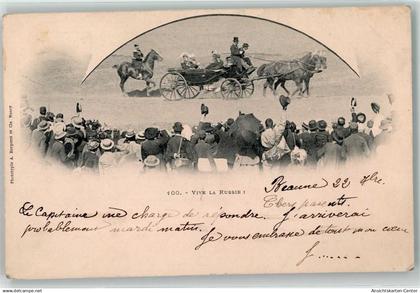 Phototypie A. Bergeret et Cie, Nancy
100. - VIVE LA RUSSIE !
Beaune 22 7bre.
Chers parents.
Le Capitaine me charge de répondre. J'arriverai
probablement mardi matin.
Je vous embrasse de tout mon coeur
J......
© oldthing.de
Ansichtskarten-Center